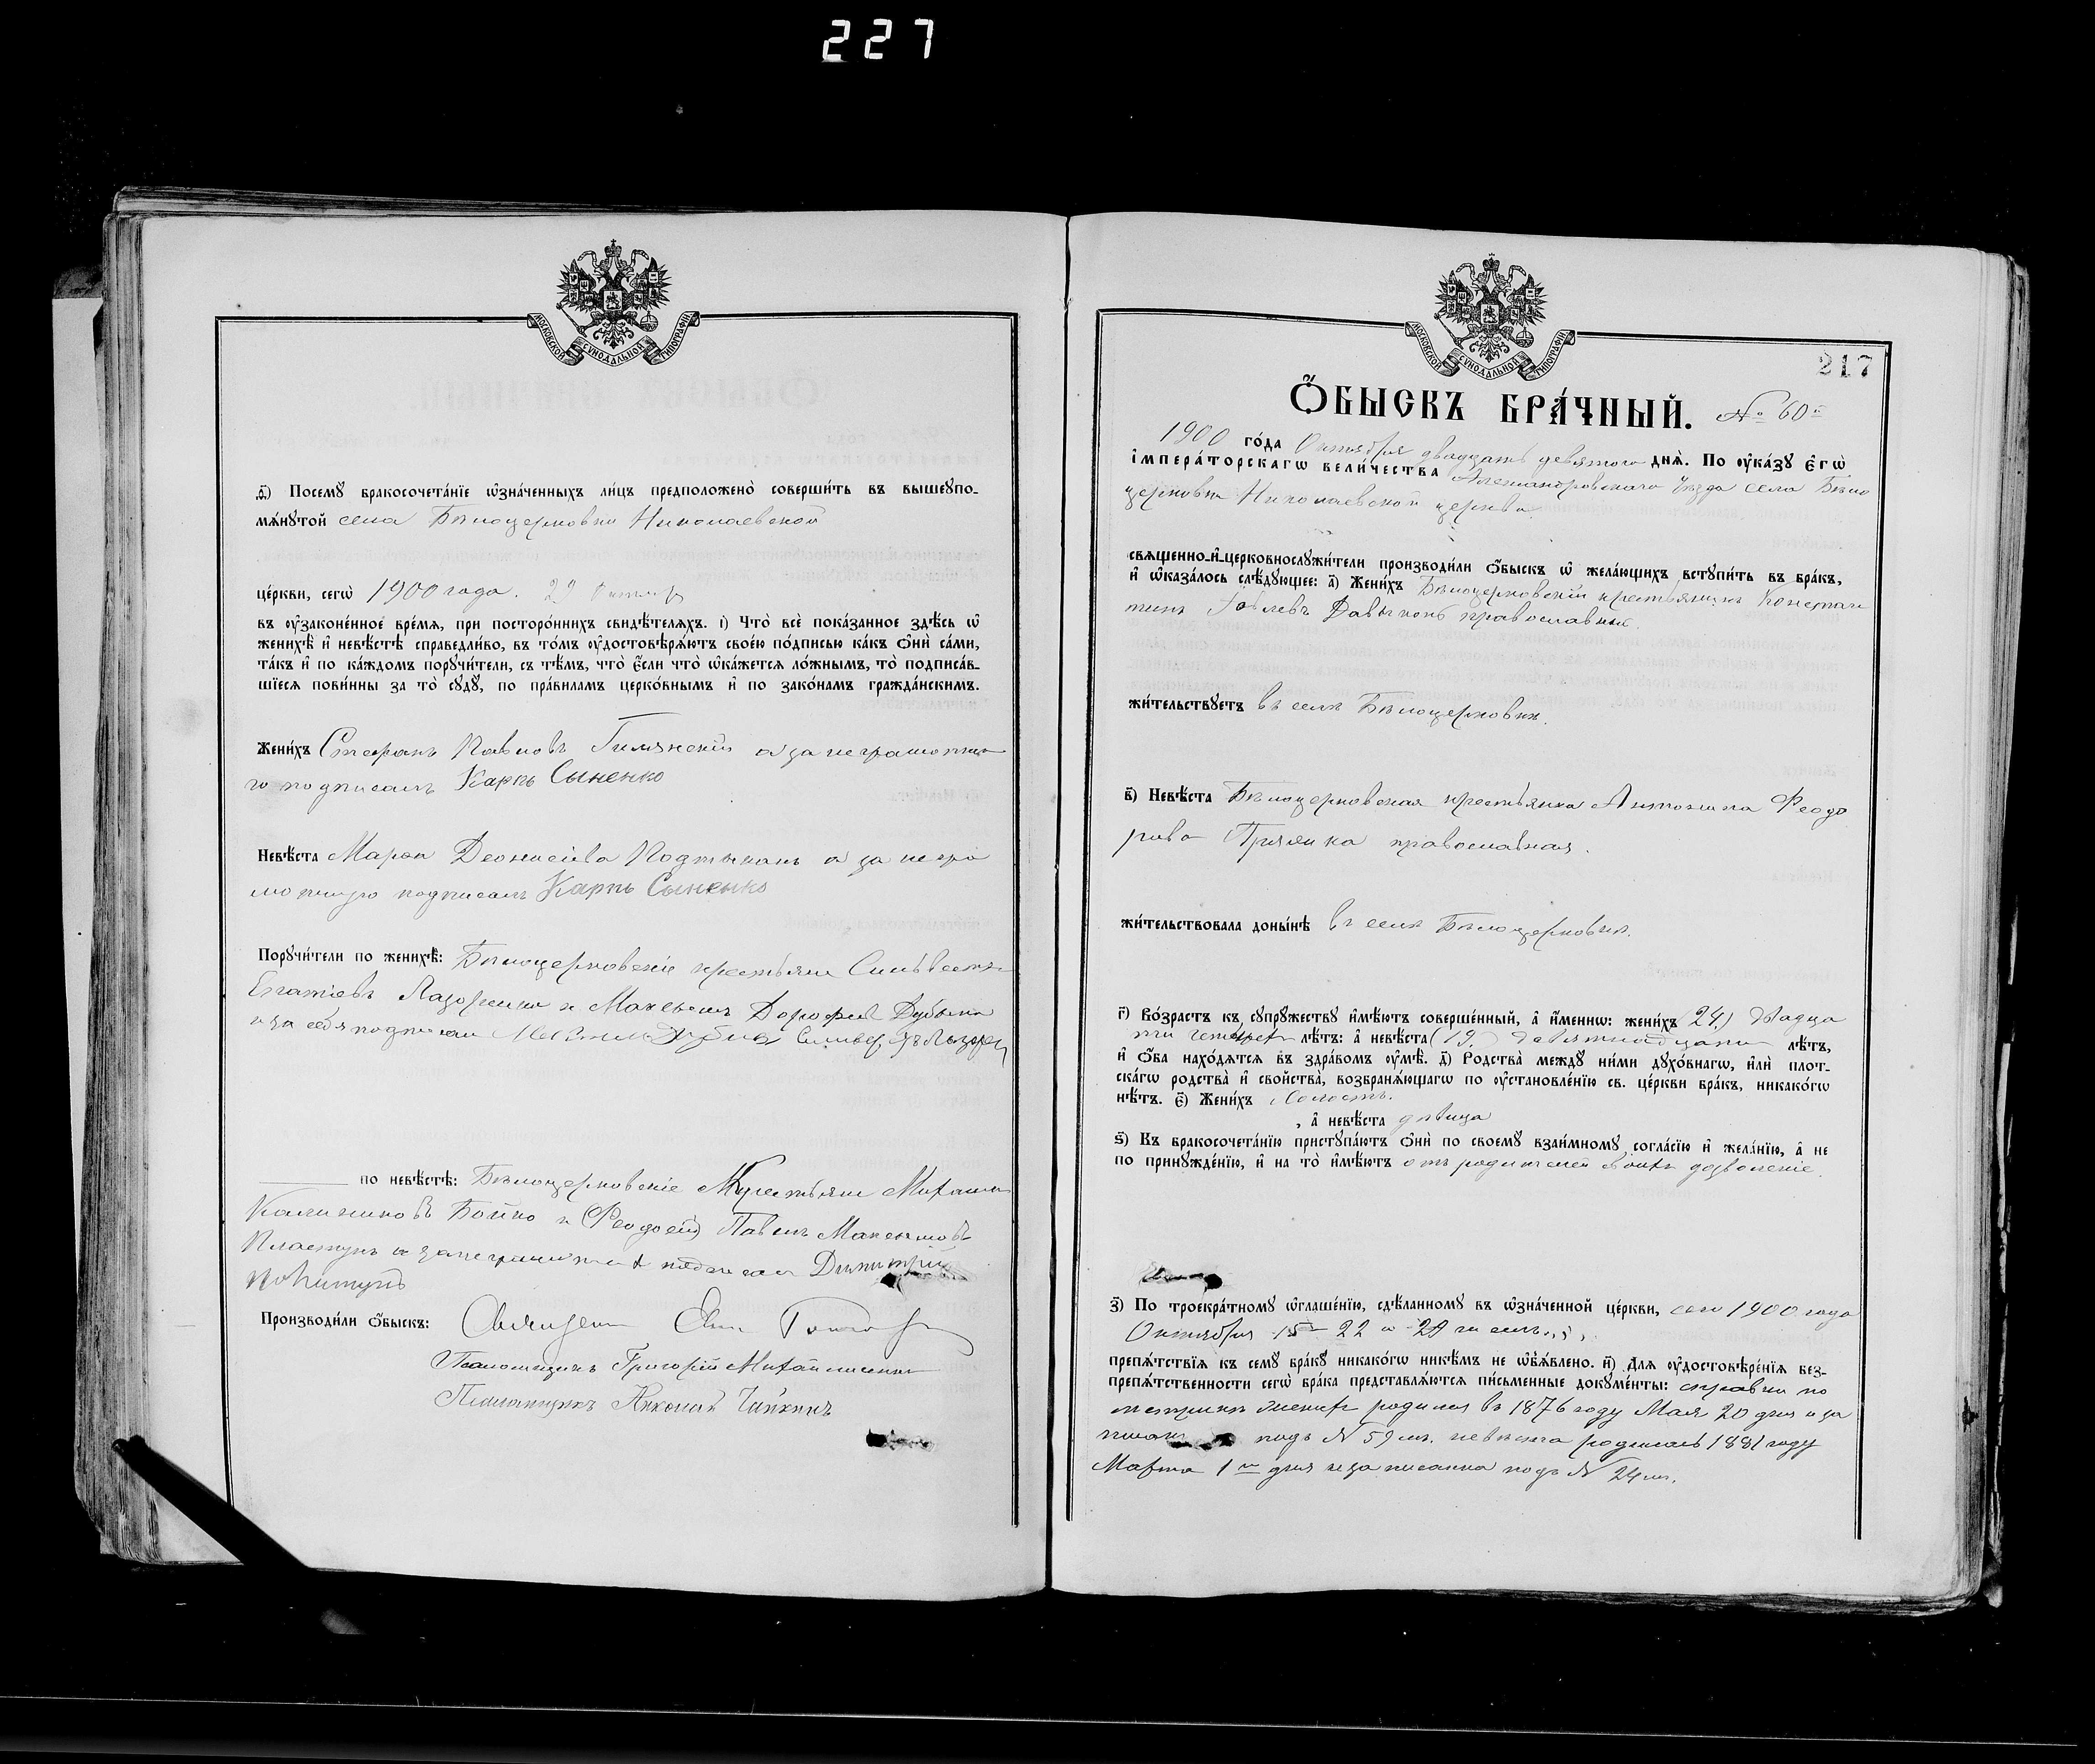 227
МОСКОВСКОЙ СѴНОДАЛЬНОЙ ТИПОГРАФІИ
ѳ҃) Посемꙋ бракосочета́нїе ѡ҆зна́ченныхъ ли́цъ предположено̀ соверши́ть въ вышеꙋпо-
мѧ́нꙋтой села Бѣлоцерковки Николаевской
це́ркви, сегѡ̀ 1900 года. 29 Октября
въ ᲂу҆зако́ненное вре́мѧ, при посторо́ннихъ свидѣ́телѧхъ. і҃) Что̀ всѐ пока́занное здѣ́сь ѡ҆
женихѣ̀ и҆ невѣ́стѣ справедли́во, въ то́мъ ᲂу҆достовѣрѧ́ютъ свое́ю по́дписью ка́къ ѻ҆нѝ са́ми,
та́къ и҆ по ка́ждомъ порꙋчи́тели, съ тѣ́мъ, что̀ є҆́сли что̀ ѡ҆ка́жетсѧ ло́жнымъ, то̀ подписа́в-
шїесѧ пови́нны за то̀ сꙋдꙋ̀, по пра́виламъ церко́внымъ и҆ по зако́намъ гражда́нскимъ.
Жени́хъ Стефанъ Павловъ а за неграмотна
го подписалъ Карпъ Сыненко
Невѣ́ста Марфа Деонисіева а за негра
мотную подписалъ Карпъ Сыненко
Порꙋчи́тели по женихѣ̀: Бѣлоцерковскіе крестьяне Сильвестръ
Игнатіевъ Лазоренко и Максимъ Дорофеевъ Дубына
и за себя подписали
по невѣ́стѣ: Бѣлоцерковскіе крестьяне Михаилъ
Калиниковъ Бойко и Павелъ Максимовъ
Пластунъ и за неграмотныхъ подписалъ Димитрій
Производи́ли ѻ҆́быскъ: Священникъ
Псаломщикъ Григорій Михайличенко
Псаломщикъ Николай Чайкинъ
МОСКОВСКОЙ СѴНОДАЛЬНОЙ ТИПОГРАФІИ
217
Ѻ҆́БЫСКЪ БРА́ЧНЫЙ. № 60й
1900 го́да Октября двадцать девятого днѧ̀. По ᲂу҆ка́зꙋ є҆гѡ̀
і҆мпера́торскагѡ вели́чества Александровскаго Уѣзда села Бѣло
церковки Николаевской церкви
свѧще́нно-и҆-церковнослꙋжи́тели производи́ли ѻ҆́быскъ ѡ҆ жела́ющихъ встꙋпи́ть въ бра́къ,
и҆ ѡ҆каза́лось слѣ́дꙋющее: а҃) Жени́хъ Бѣлоцерковскій крестьянинъ Констан
тинъ Іовлевъ православный.
жи́тельствꙋетъ въ селѣ Бѣлоцерковкѣ.
в҃) Невѣ́ста Бѣлоцерковская крестьянка Антонина Феодо
рова православная.
жи́тельствовала доны́нѣ въ селѣ Бѣлоцерковкѣ.
г҃) Во́зрастъ къ сꙋпрꙋ́жествꙋ и҆мѣ́ютъ соверше́нный, а҆ и҆́менно: жени́хъ (24.) двадца
ти четырехъ лѣ́тъ: а҆ невѣ́ста (19.) девятнадцати лѣ́тъ,
и҆ ѻ҆́ба нахо́дѧтсѧ въ здра́вомъ ᲂу҆мѣ̀. д҃) Родства̀ междꙋ̀ ни́ми дꙋхо́внагѡ, и҆лѝ плот-
ска́гѡ родства̀ и҆ сво́йства̀, возбранѧ́ющагѡ по ᲂу҆становле́нїю св. це́ркви бра́къ, никако́гѡ
нѣ́тъ. є҃) Жени́хъ холостъ.
, а҆ невѣ́ста дѣвица
ѕ҃) Къ бракосочета́нїю пристꙋпа́ютъ ѻ҆нѝ по своемꙋ̀ взаи́мномꙋ согла́сїю и҆ жела́нїю, а҆ не
по принꙋжде́нїю, и҆ на то̀ и҆мѣ́ютъ отъ родителей своихъ дозволеніе.
з҃) По троекра́тномꙋ ѡ҆глаше́нїю, сдѣ́ланномꙋ въ ѡ҆зна́ченной це́ркви, сего 1900 года
Октября 15 22 и 29 чиселъ
препѧ́тствїѧ къ семꙋ̀ бра́кꙋ никако́гѡ никѣ́мъ не ѡ҆б̾ѧ́влено. и҃) Длѧ ᲂу҆достовѣре́нїѧ без-
препѧ́тственности сегѡ̀ бра́ка представлѧ́ютсѧ пи́сьменные докꙋме́нты: справки по
метрикѣ женихъ родился въ 1876 году Мая 20 дня и за
писанъ подъ № 59 мъ. невѣста родилась 1881 году
Марта 1 го дня и записанна подъ № 24 мъ.